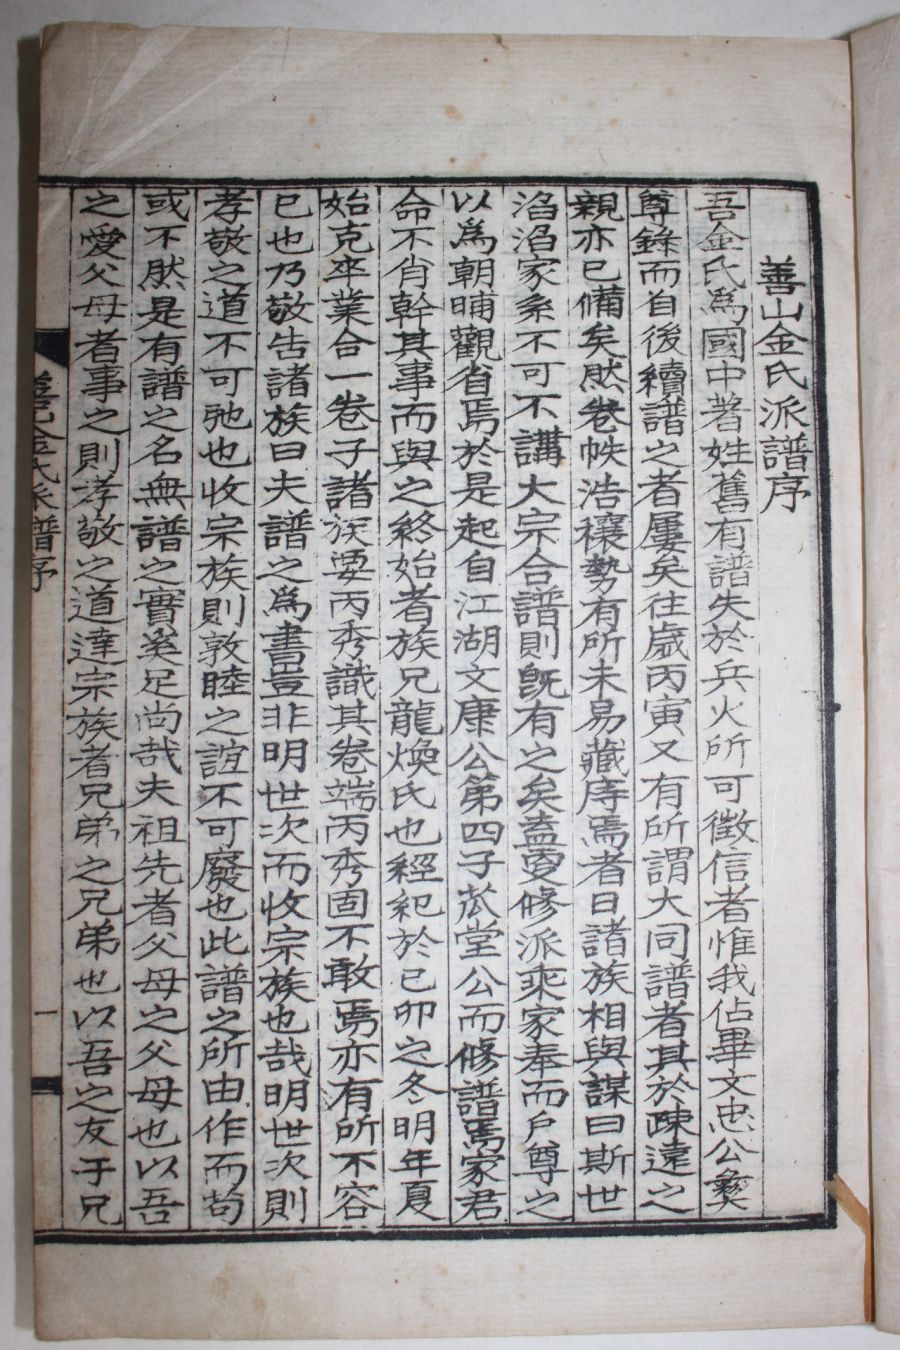 善山金氏派譜序
吾金氏爲國中著姓舊有譜失於兵火所可徵信者惟我佔畢文忠公彝
尊錄而自後續譜之者屢矣往歲丙寅又有所謂大同譜者其於疎遠之
親亦已備矣然卷帙浩穰勢有所未易藏庤焉者日諸族相與謀曰斯世
滔滔家系不可不講大宗合譜則旣有之矣盍更修派乘家奉而戶尊之
以爲朝晡觀省焉於是起自江湖文康公第四子苽堂公而修譜焉家君
命不肖幹其事而與之終始者族兄龍煥氏也經紀於己卯之冬明年夏
始克卒業合一卷子諸族要丙秀識其卷端丙秀固不敢焉亦有所不容
已也乃敬告諸族曰夫譜之爲書豈非明世次而收宗族也哉明世次則
孝敬之道不可弛也收宗族則敦睦之誼不可廢也此譜之所由作而苟
或不然是有譜之名無譜之實奚足尚哉夫祖先者父母之父母也以吾
之愛父母者事之則孝敬之道達宗族者兄弟之兄弟也以吾之友于兄
善山金氏派譜序
一